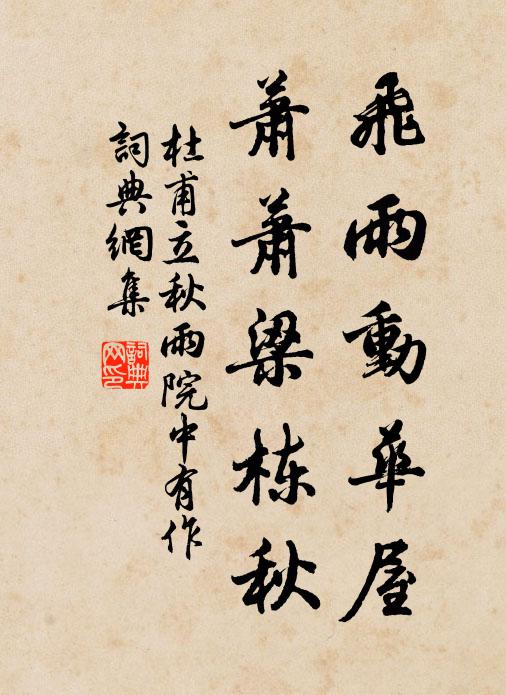 飛雨動華屋
蕭蕭梁栋秋
杜甫立秋雨院中有作
詞典網集
詞典网印